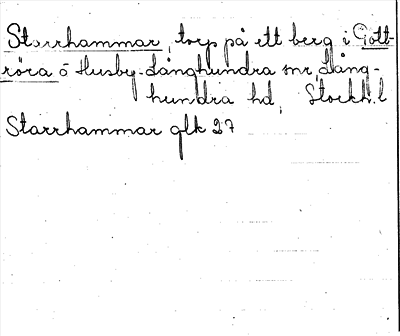 Starrhammar, torp på ett berg i Gott-
röra o Husby-Långhundra snr, Lång-
hundra hd, Stockh. l
Starrhammar glk 27